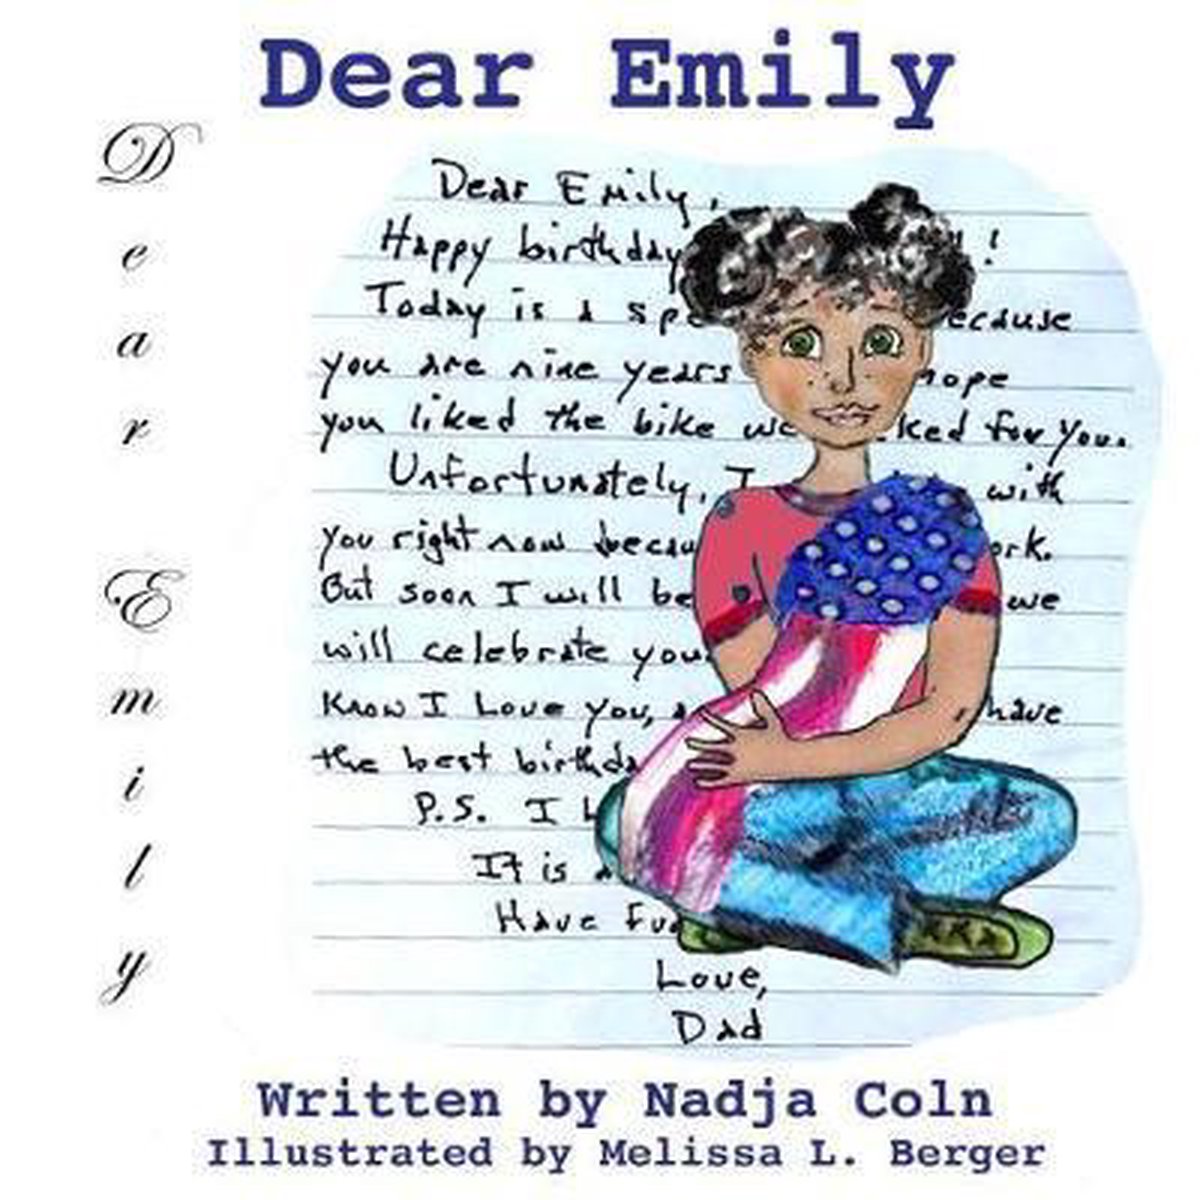 Dear Emily
Dear Emily
Dear Emily,
Happy birthday !
Today is a spe ecause
you are nine years ope
you liked the bike we ked for you.
Unfortunately, I with
you right now becau ork.
But soon I will be we
will celebrate you
Know I Love you, a have
the best birthda
P.S. I
It is a
Have fu
Love,
Dad
Written by Nadja Coln
Illustrated by Melissa L. Berger